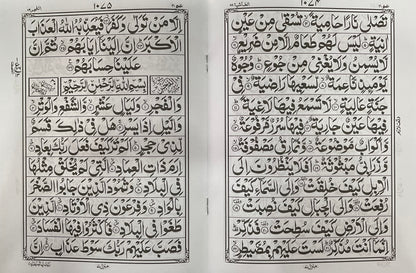 ١٠٧٤
تَصْلٰى نَارًا حَامِيَةً ۙ تُسْقٰى مِنْ عَيْنٍ
اٰنِيَةٍ ؕ لَيْسَ لَهُمْ طَعَامٌ اِلَّا مِنْ ضَرِيْعٍ ۙ
لَّا يُسْمِنُ وَلَا يُغْنِيْ مِنْ جُوْعٍ ؕ وُجُوْهٌ
يَّوْمَئِذٍ نَّاعِمَةٌ ۙ لِّسَعْيِهَا رَاضِيَةٌ ۙ فِيْ
جَنَّةٍ عَالِيَةٍ ۙ لَّا تَسْمَعُ فِيْهَا لَاغِيَةً ؕ
فِيْهَا عَيْنٌ جَارِيَةٌ ۘ فِيْهَا سُرُرٌ مَّرْفُوْعَةٌ ۙ
وَّاَكْوَابٌ مَّوْضُوْعَةٌ ۙ وَّنَمَارِقُ مَصْفُوْفَةٌ ۙ
وَّزَرَابِيُّ مَبْثُوْثَةٌ ؕ اَفَلَا يَنْظُرُوْنَ اِلَى
الْاِبِلِ كَيْفَ خُلِقَتْ ۥ وَاِلَى السَّمَآءِ كَيْفَ
رُفِعَتْ ۥ وَاِلَى الْجِبَالِ كَيْفَ نُصِبَتْ ۥ
وَاِلَى الْاَرْضِ كَيْفَ سُطِحَتْ ۥ فَذَكِّرْ
اِنَّمَآ اَنْتَ مُذَكِّرٌ ؕ لَسْتَ عَلَيْهِمْ بِمُصَيْطِرٍ ۙ
١٠٧٥
اِلَّا مَنْ تَوَلّٰى وَكَفَرَ ۙ فَيُعَذِّبُهُ اللّٰهُ الْعَذَابَ
الْاَكْبَرَ ؕ اِنَّ اِلَيْنَآ اِيَابَهُمْ ۙ ثُمَّ اِنَّ
عَلَيْنَا حِسَابَهُمْ
بِسْمِ اللّٰهِ الرَّحْمٰنِ الرَّحِيْمِ
وَالْفَجْرِ ۙ وَلَيَالٍ عَشْرٍ ۙ وَّالشَّفْعِ وَالْوَتْرِ ۙ
وَالَّيْلِ اِذَا يَسْرِ ۚ هَلْ فِيْ ذٰلِكَ قَسَمٌ
لِّذِيْ حِجْرٍ ؕ اَلَمْ تَرَ كَيْفَ فَعَلَ رَبُّكَ بِعَادٍ
اِرَمَ ذَاتِ الْعِمَادِ ۙ الَّتِيْ لَمْ يُخْلَقْ مِثْلُهَا
فِي الْبِلَادِ ۙ وَثَمُوْدَ الَّذِيْنَ جَابُوا الصَّخْرَ
بِالْوَادِ ۙ وَفِرْعَوْنَ ذِي الْاَوْتَادِ ۙ الَّذِيْنَ
طَغَوْا فِي الْبِلَادِ ۙ فَاَكْثَرُوْا فِيْهَا الْفَسَادَ ۙ
فَصَبَّ عَلَيْهِمْ رَبُّكَ سَوْطَ عَذَابٍ ۙ اِنَّ